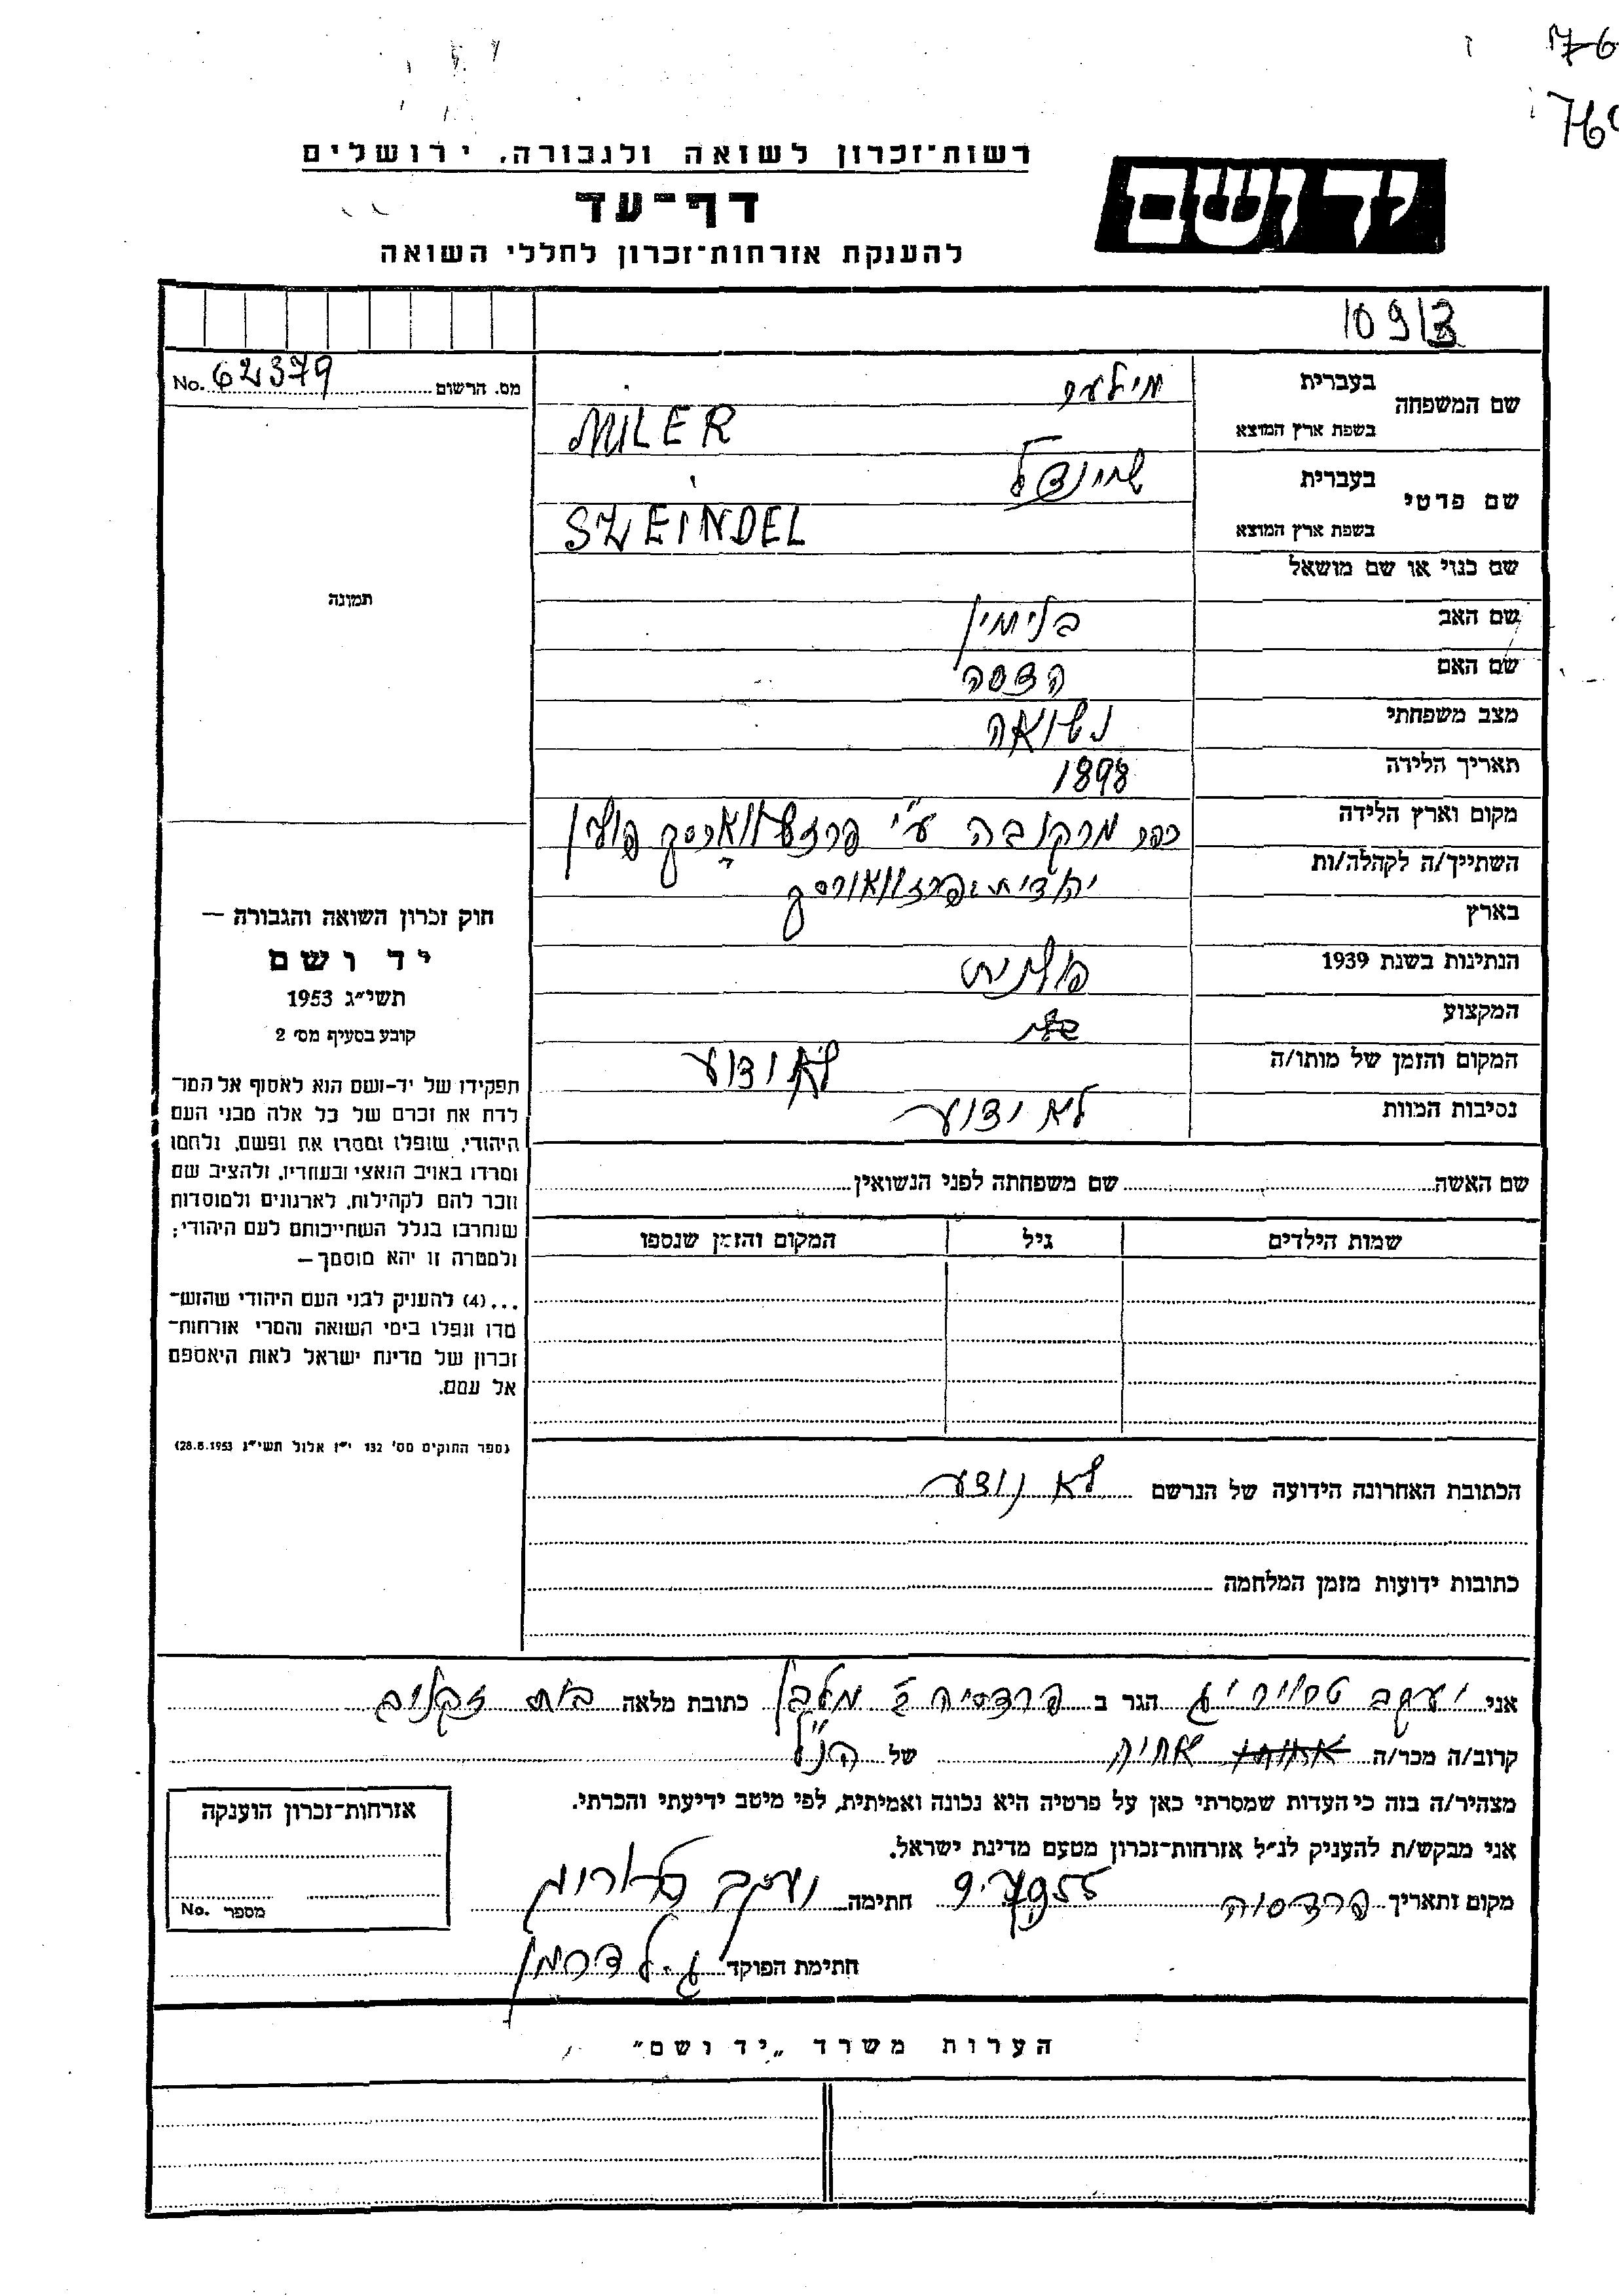 76
76
רשות־זכרון לשואה ולגבורה, ירושלים
יד ושם
דף־עד
להענקת אזרחות־זכרון לחללי השואה
10913
מס. הרשום No. 62379
שם המשפחה
בעברית
מילער
בשפת ארץ המוצא
MILER
שם פרטי
בעברית
שיינדל
בשפת ארץ המוצא
SZEINDEL
שם כנוי או שם מושאל
תמונה
שם האב בנימין
שם האם הדסה
מצב משפחתי נשואה
תאריך הלידה 1898
מקום וארץ הלידה כפר מרקובה ע"י פרזעווארסק פולין
השתייך/ה לקהלה/ות יהודית פרזוואורסק
בארץ
הנתינות בשנת 1939 פולנית
המקצוע
המקום והזמן של מותו/ה לא ידוע
נסיבות המוות לא ידוע
שם האשה שם משפחתה לפני הנשואין
שמות הילדים גיל המקום והזמן שנספו
חוק זכרון השואה והגבורה —
יד ושם
תשי״ג 1953
קובע בסעיף מס׳ 2
תפקידו של יד-ושם הוא לאסוף אל המו־
לדת את זכרם של כל אלה מבני העם
היהודי, שנפלו ומסרו את נפשם, נלחמו
ומרדו באויב הנאצי ובעוזריו, ולהציב שם
וזכר להם לקהילות, לארגונים ולמוסדות
שנחרבו בגלל השתייכותם לעם היהודי;
ולמטרה זו יהא מוסמך —
...(4) להעניק לבני העם היהודי שהוש־
מדו ונפלו בימי השואה והמרי אזרחות־
זכרון של מדינת ישראל לאות היאספם
אל עמם.
(ספר החוקים מס׳ 132 י״ז אלול תשי״ג 28.8.1953)
הכתובת האחרונה הידועה של הנרשם לא נודע
כתובות ידועות מזמן המלחמה
אני יעקב הגר ב פרדסיה מלבן כתובת מלאה בית זקנים
קרוב/ה מכר/ה אחיה של הנ"ל
מצהיר/ה בזה כי העדות שמסרתי כאן על פרטיה היא נכונה ואמיתית, לפי מיטב ידיעתי והכרתי.
אני מבקש/ת להעניק לנ״ל אזרחות־זכרון מטעם מדינת ישראל.
מקום ותאריך פרדסיה חתימה יעקב
חתימת הפוקד ג. לדרמן
אזרחות־זכרון הוענקה
מספר No.
הערות משרד „יד ושם״